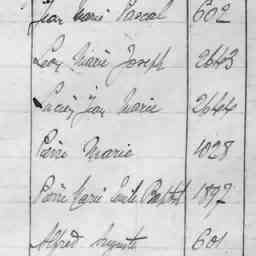 Jean Marie Pascal 602
Léon Marie Joseph 2643
Lucien Jean Marie 2644
Pierre Marie 1028
Pierre Marie Emile Baptiste 1897
Alfred Auguste 601